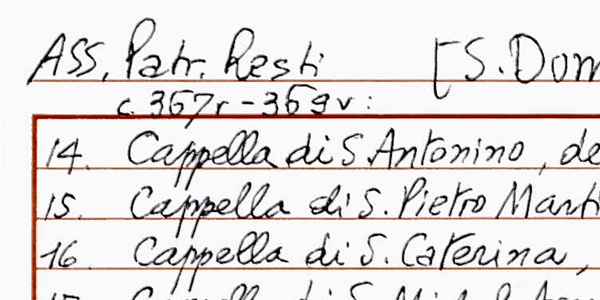 ASS, Patr. Resti [S. Dom
c. 367r - 369v:
14. Cappella di S Antonino, de
15. Cappella di S. Pietro Marti
16 Cappella di S. Caterina,